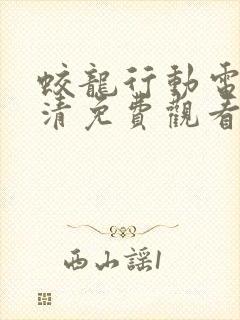 蛟龍行動電
清免費觀看
西山謠1